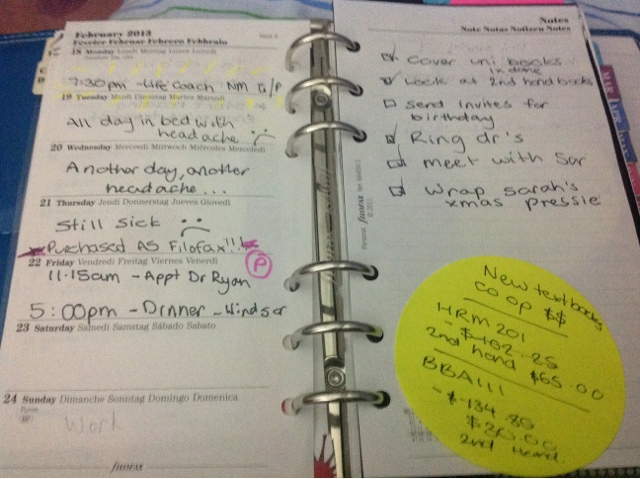 February 2013
Février Februar Febrero Febbraio
18 Monday Lundi Montag Lunes Lunedì
7:30pm - Life Coach NM G/P
19 Tuesday Mardi Dienstag Martes Martedì
All day in bed with
headache :(
20 Wednesday Mercredi Mittwoch Miércoles Mercoledì
Another day, another
headache...
21 Thursday Jeudi Donnerstag Jueves Giovedì
Still sick :(
Purchased A5 Filofax!!!
22 Friday Vendredi Freitag Viernes Venerdì
P
11.15am - Appt Dr Ryan
5:00pm - Dinner - Windsor
23 Saturday Samedi Samstag Sábado Sabato
24 Sunday Dimanche Sonntag Domingo Domenica
Purim
Work
filofax
Notes
Note Notas Notizen Notes
Cover uni books
1x done
Look at 2nd hand books
send invites for
birthday
Ring dr's
meet with Sar
Wrap sarah's
xmas pressie
filofax
New textbooks
co op $$
HRM 201
- $102.25
2nd hand $65.00
BBA111
- $134.80
$20.00
2nd hand
MAR